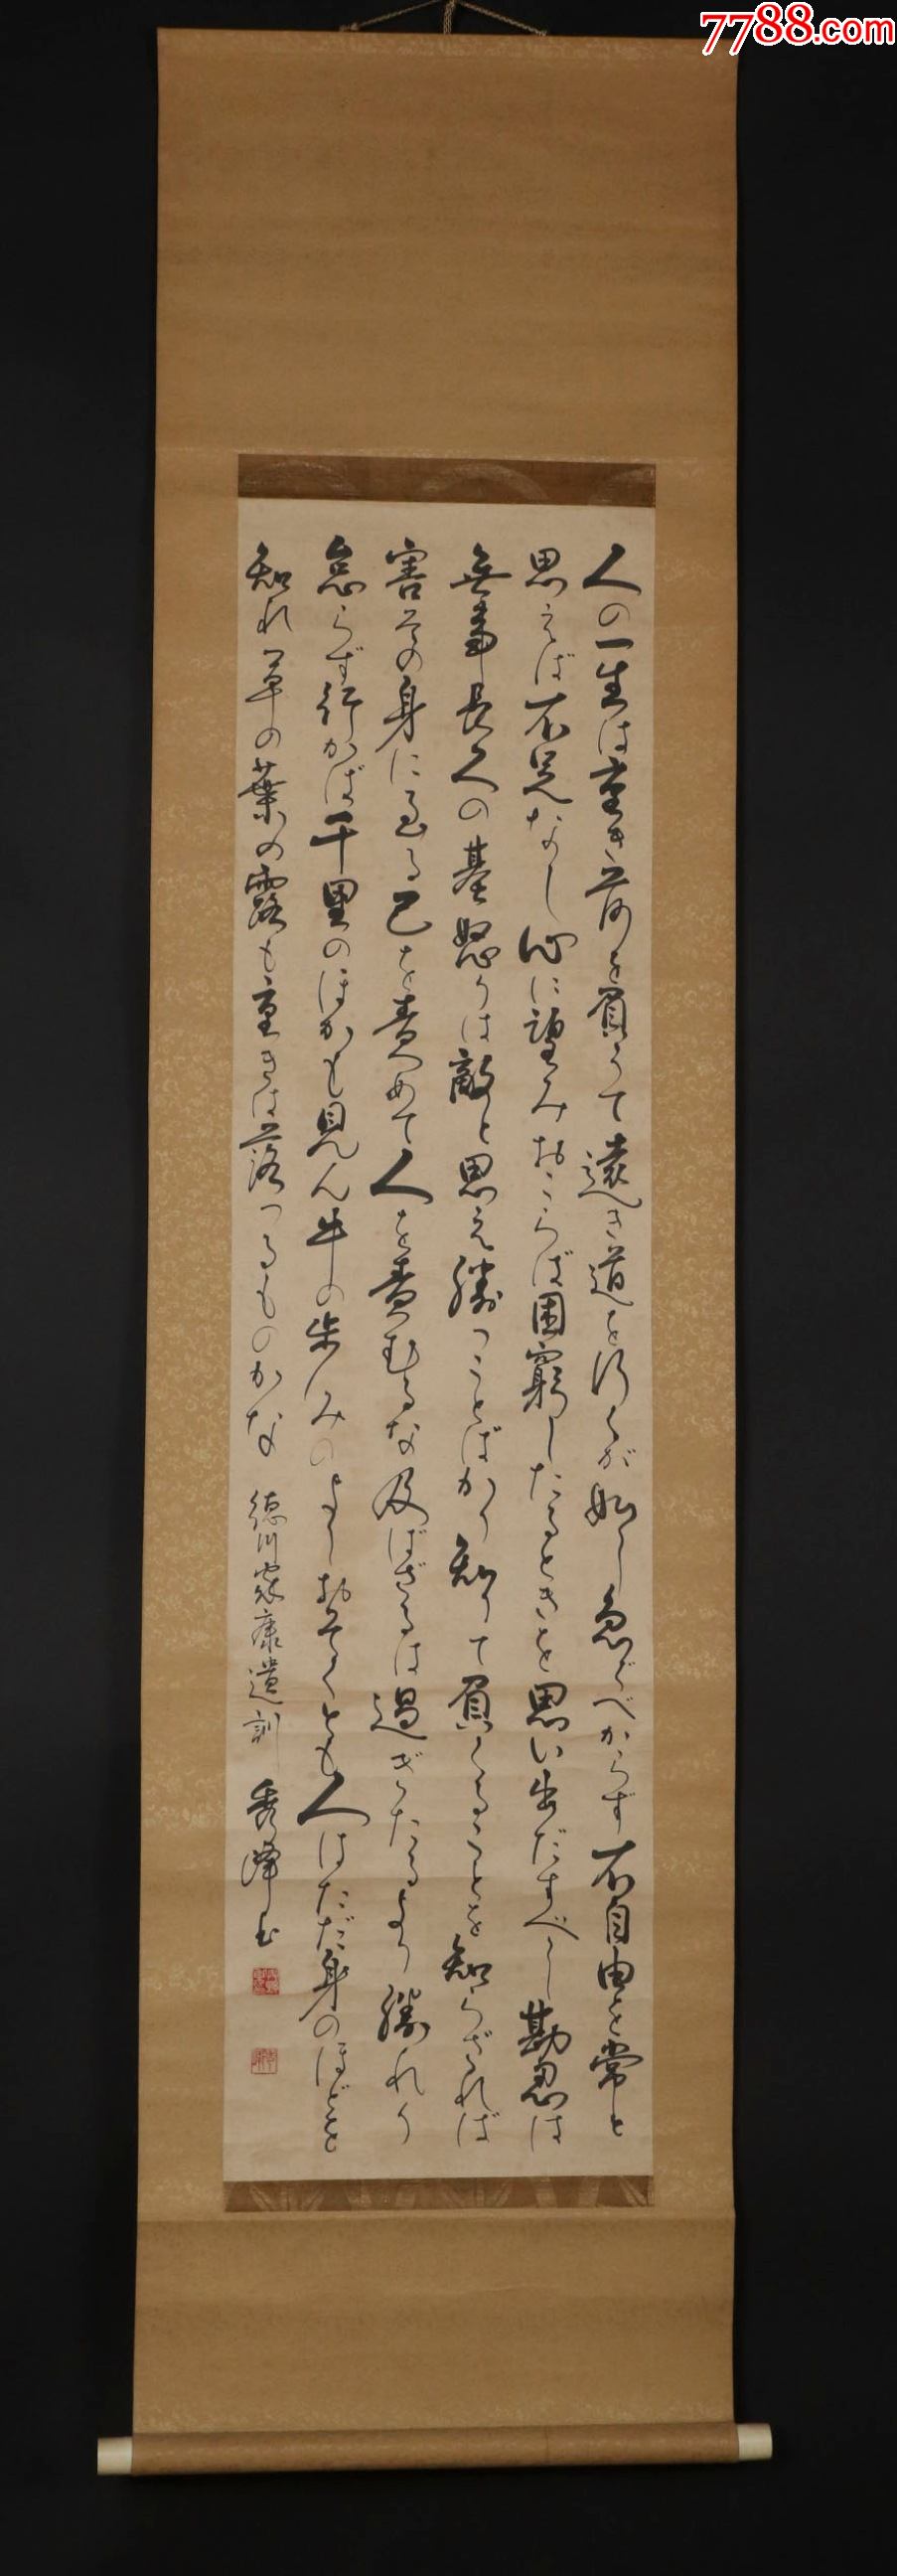 7788.com
人の一生は重き荷を負うて遠き道を行くが如し急ぐべからず不自由を常と
思えば不足なし心に望みおこらば困窮したるときを思い出だすべし勘忍は
無事長久の基怒りは敵と思え勝つことばかり知りて負くることを知らざれば
害その身に至る己を責めて人を責むるな及ばざるは過ぎたるより勝れり
怠らず行かば千里のほかも見ん牛の歩みのよしおそくとも人はただ身のほどを
知れ草の葉の露も重きは落つるものかな 徳川家康遺訓 秀峰書